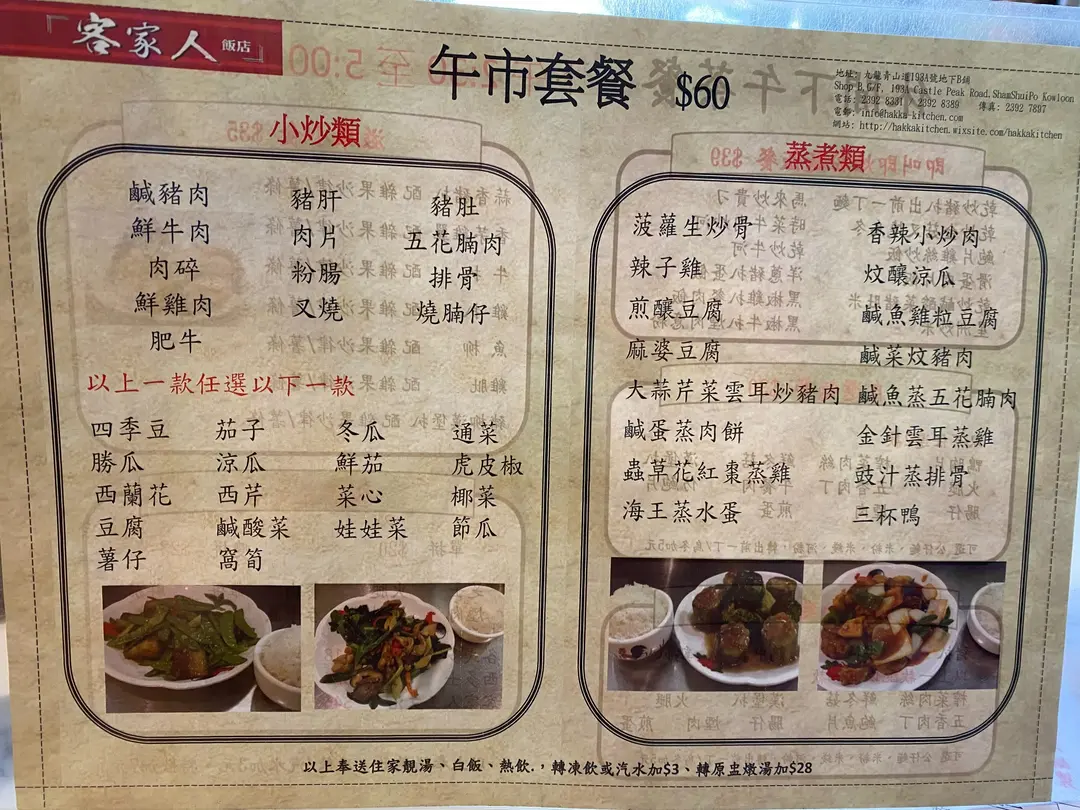 「客家人飯店」
午市套餐 $60
地址: 九龍青山道193A號地下B鋪
Shop B,G/F, 193A Castle Peak Road,ShamShuiPo Kowloon
電話: 2392 8381 2392 8389 傳真: 2392 7897
電郵: info@hakka-kitchen.com
網站: http://hakkakitchen.wixsite.com/hakkakitchen
小炒類
鹹豬肉 豬肝 豬肚
鮮牛肉 肉片 五花腩肉
肉碎 粉腸 排骨
鮮雞肉 叉燒 燒腩仔
肥牛
以上一款任選以下一款
四季豆 茄子 冬瓜 通菜
勝瓜 涼瓜 鮮茄 虎皮椒
西蘭花 西芹 菜心 椰菜
豆腐 鹹酸菜 娃娃菜 節瓜
薯仔 窩筍
蒸煮類
菠蘿生炒骨 香辣小炒肉
辣子雞 炆釀涼瓜
煎釀豆腐 鹹魚雞粒豆腐
麻婆豆腐 鹹菜炆豬肉
大蒜芹菜雲耳炒豬肉 鹹魚蒸五花腩肉
鹹蛋蒸肉餅 金針雲耳蒸雞
蟲草花紅棗蒸雞 豉汁蒸排骨
海王蒸水蛋 三杯鴨
以上奉送住家靚湯、白飯、熱飲.，轉凍飲或汽水加$3、轉原盅燉湯加$28